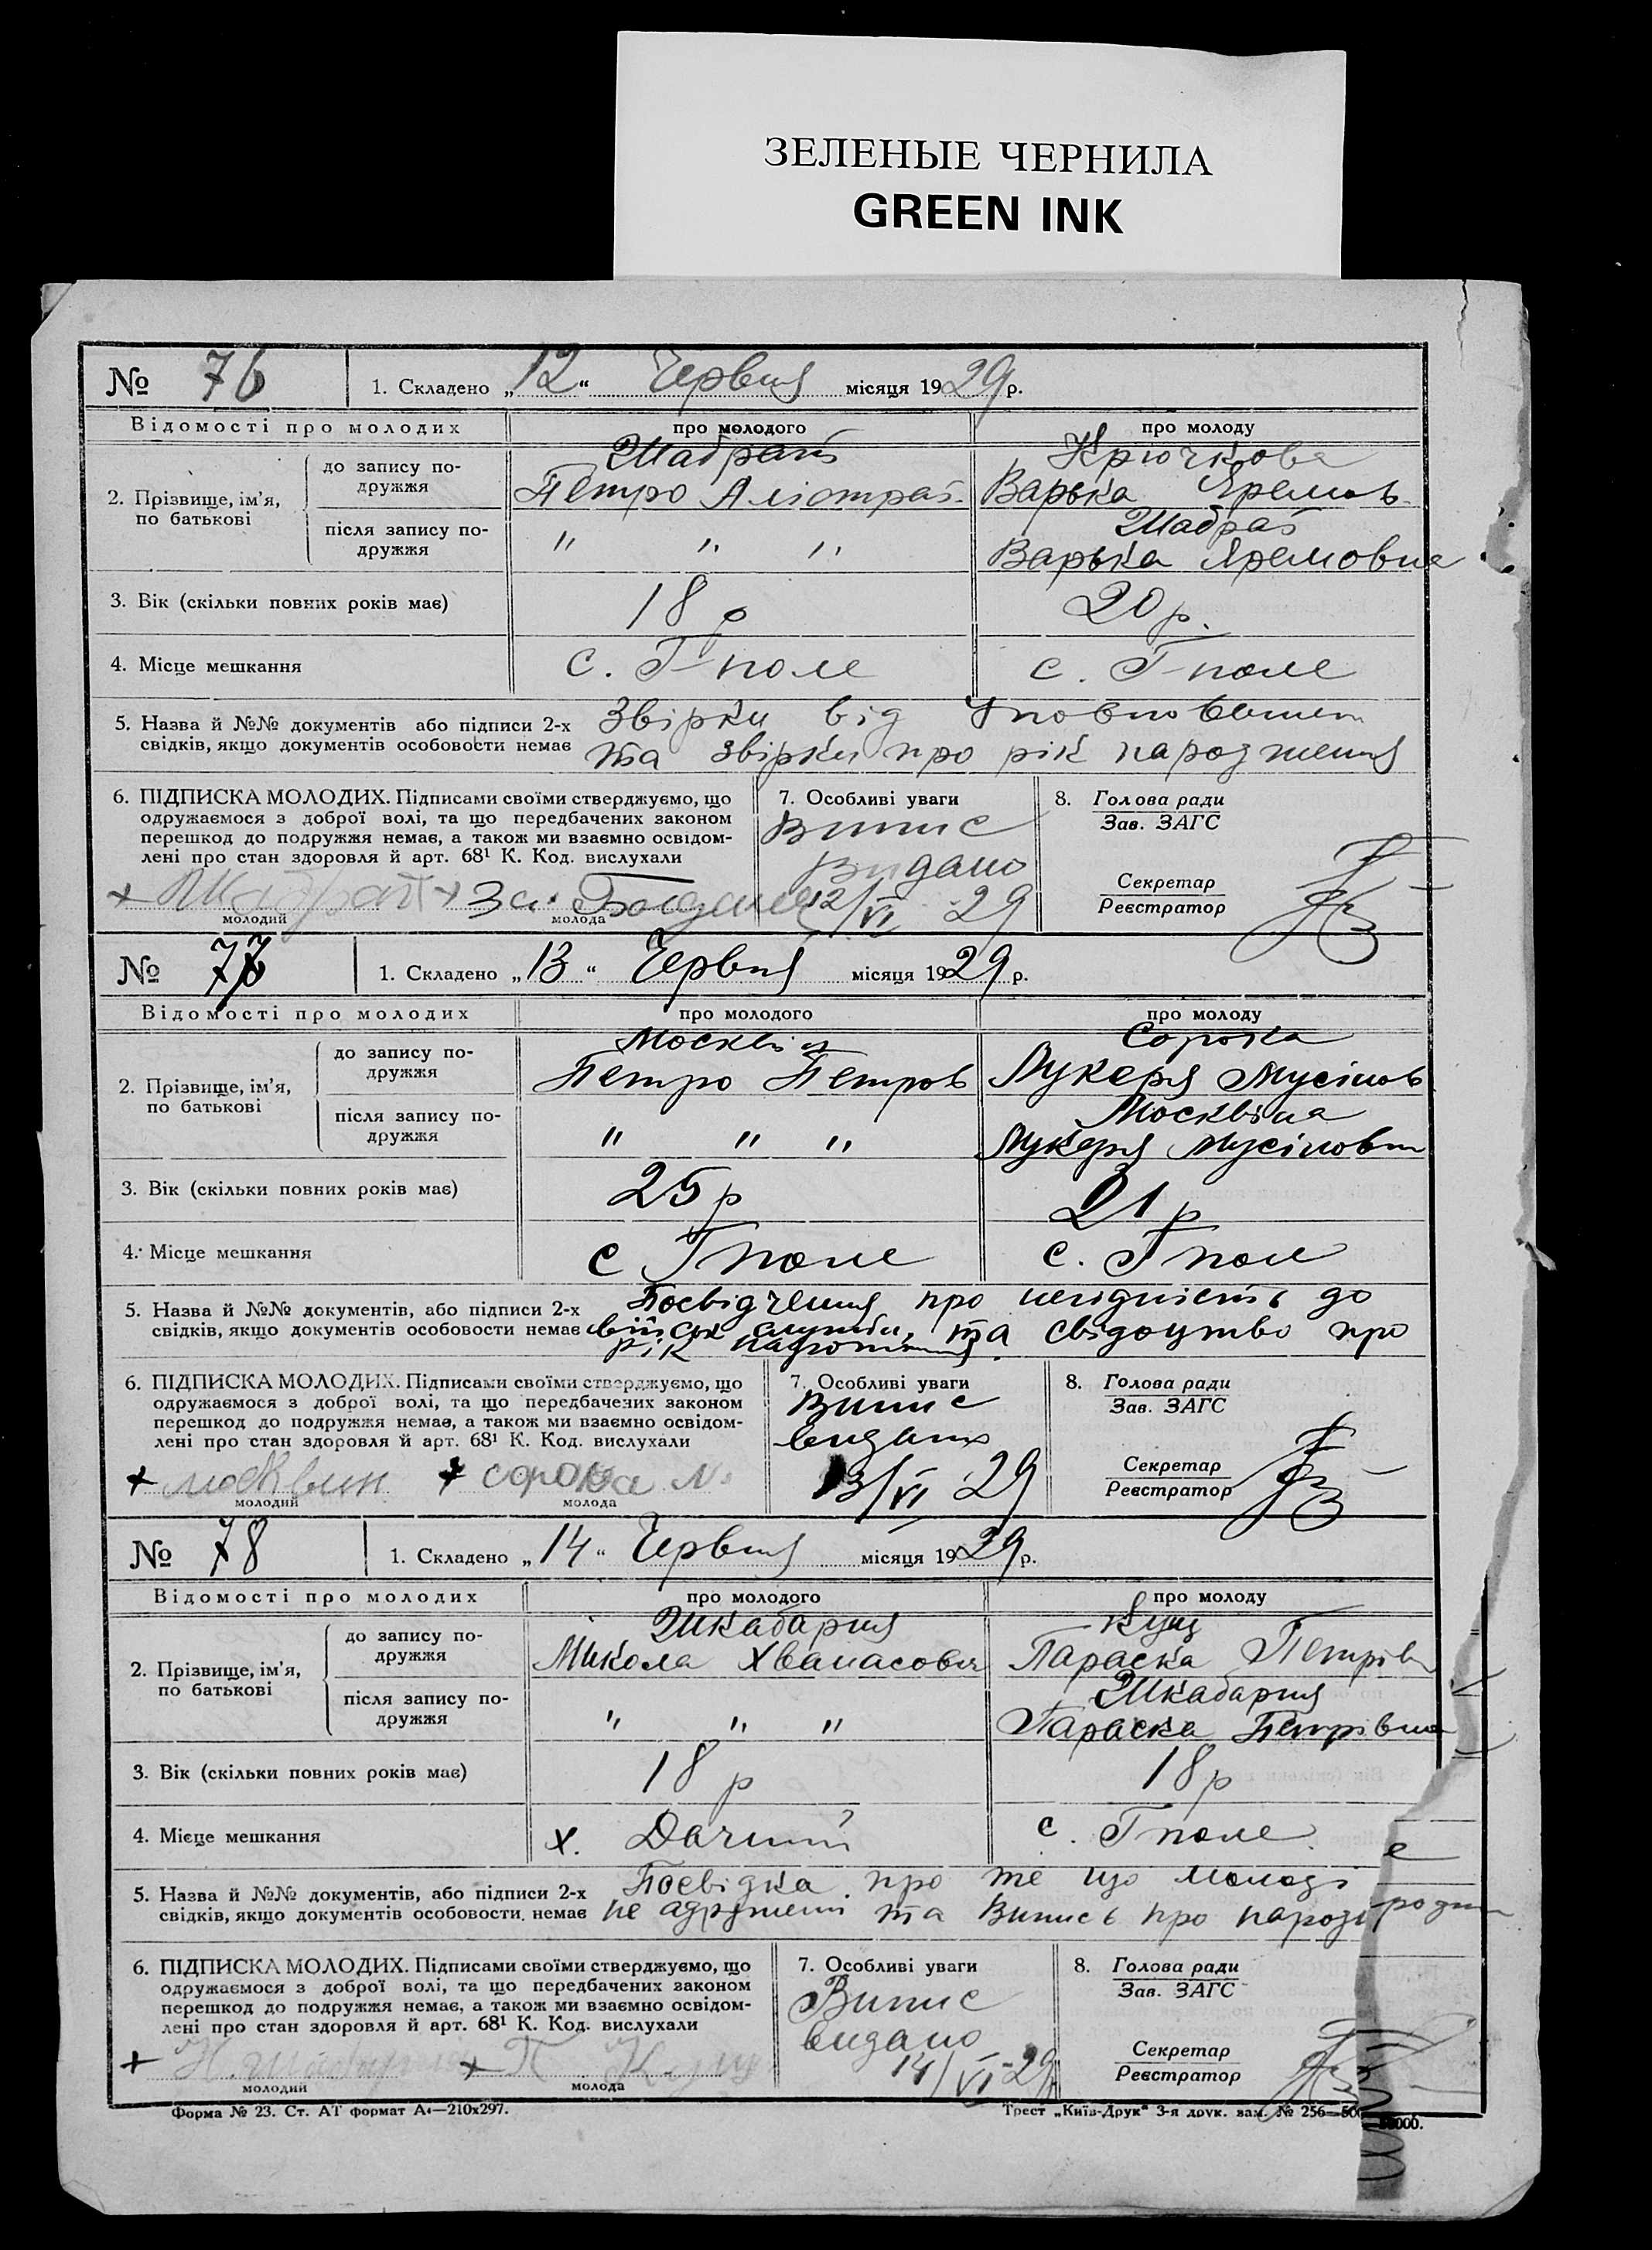 ЗЕЛЕНЫЕ ЧЕРНИЛА
GREEN INK
№ 76 1. Складено „12“ Червня місяця 1929 р.
Відомості про молодих про молодого про молоду
Шабрат Крючкова
2. Прізвище, ім’я, по батькові до запису по-дружжя Петро Варька Яремов
Шабрат
після запису по-дружжя " " " Варька Яремовна
3. Вік (скільки повних років має) 18 р 20 р.
4. Місце мешкання с. Г-поле с. Г-поле
5. Назва й №№ документів або підписи 2-х Звірки від
свідків, якщо документів особовости немає та звірки про рік народження
6. ПІДПИСКА МОЛОДИХ. Підписами своїми стверджуємо, що
одружаємося з доброї волі, та що передбачених законом
перешкод до подружжя немає, а також ми взаємно освідом-
лені про стан здоровля й арт. 68¹ К. Код. вислухали
+ + За
молодий молода
7. Особливі уваги
Випис
видано
12/VI 29
8. Голова ради
Зав. ЗАГС
Секретар
Реєстратор
№ 77 1. Складено „13“ Червня місяця 1929 р.
Відомості про молодих про молодого про молоду
Москвін Сорока
2. Прізвище, ім’я, по батькові до запису по-дружжя Петро Петров Лукеря Мусіьов
Москвіна
після запису по-дружжя " " " Лукеря
3. Вік (скільки повних років має) 25 р 21 р
4. Місце мешкання с Гполе с. Гполе
5. Назва й №№ документів, або підписи 2-х Посвідчення про негідність до
свідків, якщо документів особовости немає війск служби, та свідоцтво про
рік
6. ПІДПИСКА МОЛОДИХ. Підписами своїми стверджуємо, що
одружаємося з доброї волі, та що передбачених законом
перешкод до подружжя немає, а також ми взаємно освідом-
лені про стан здоровля й арт. 68¹ К. Код. вислухали
+ москвин + сорока
молодий молода
7. Особливі уваги
Випис
видано
13/VI 29
8. Голова ради
Зав. ЗАГС
Секретар
Реєстратор
№ 78 1. Складено „14“ Червня місяця 1929 р.
Відомості про молодих про молодого про молоду
Шкабарня Кущ
2. Прізвище, ім’я, по батькові до запису по-дружжя Микола Хванасович Параска Петрівн
Шкабарня
після запису по-дружжя " " " Параска Петрівна
3. Вік (скільки повних років має) 18 р 18 р
4. Місце мешкання х. Дачний с. Гполе
5. Назва й №№ документів, або підписи 2-х Посвідка про те що молоді
свідків, якщо документів особовости немає не адружені та Випись про
6. ПІДПИСКА МОЛОДИХ. Підписами своїми стверджуємо, що
одружаємося з доброї волі, та що передбачених законом
перешкод до подружжя немає, а також ми взаємно освідом-
лені про стан здоровля й арт. 68¹ К. Код. вислухали
+ + П Кущ
молодий молода
7. Особливі уваги
Випис
видано
14/VI-29
8. Голова ради
Зав. ЗАГС
Секретар
Реєстратор
Форма № 23. Ст. АТ формат А4—210х297. Трест „Київ-Друк“ 3-я друк. зам. № 256—